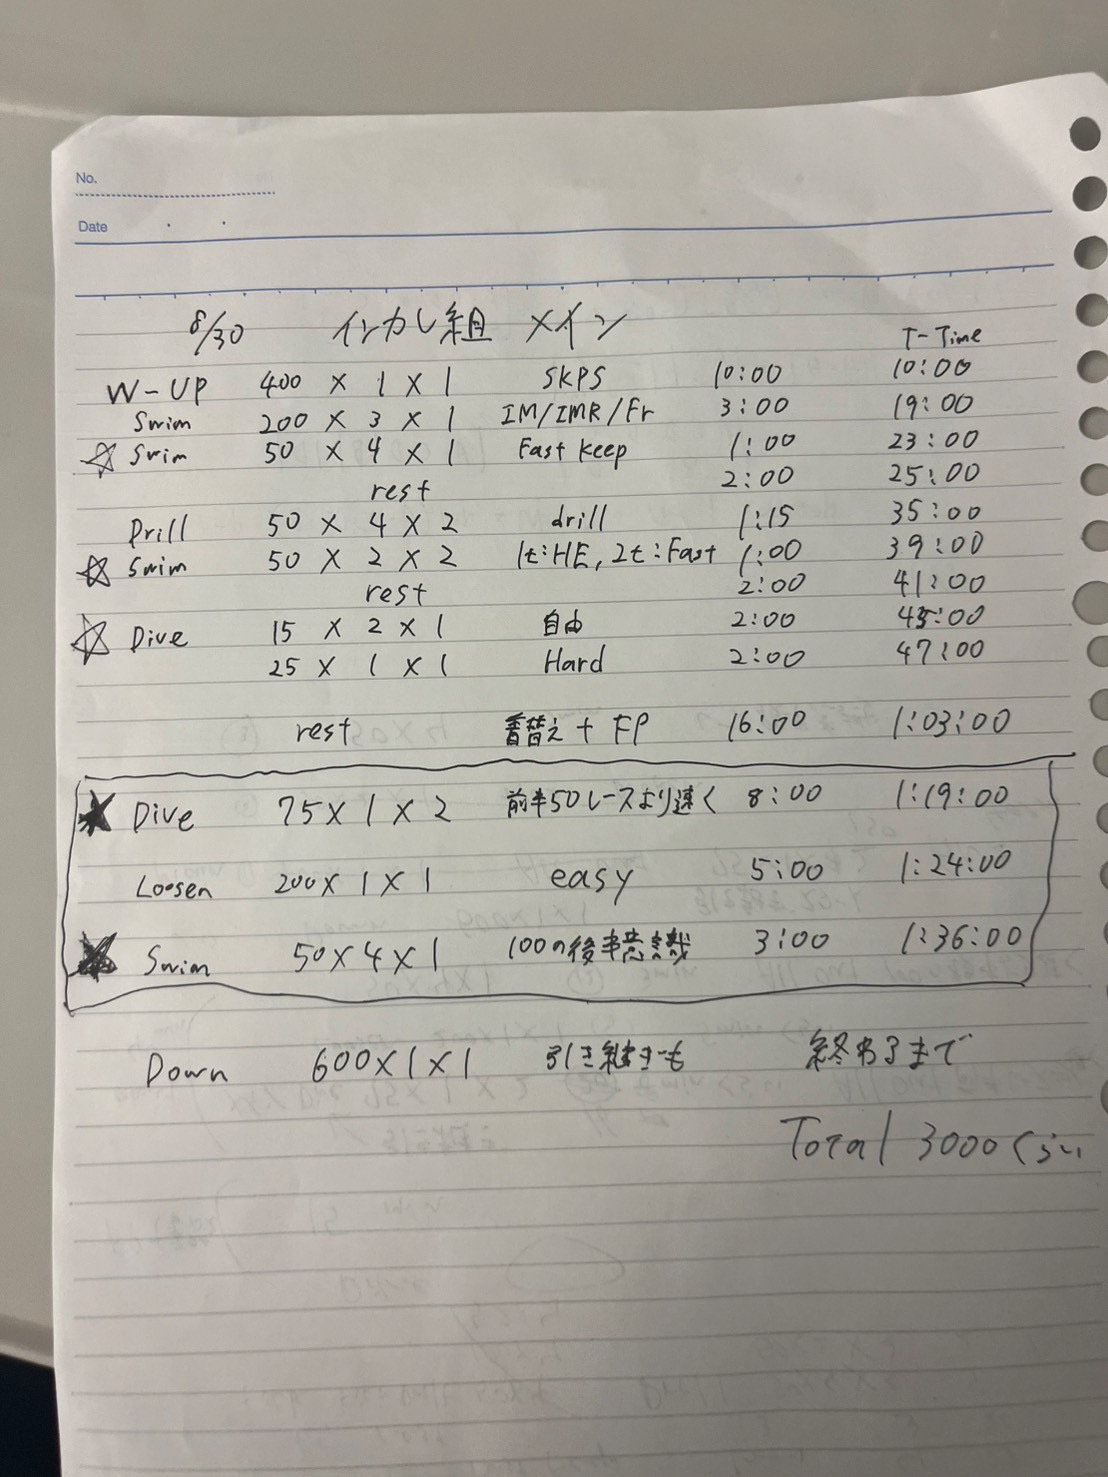 No.
Date
8/30 インカレ組 メイン
T-Time
W-UP 400 × 1 × 1 SKPS 10:00 10:00
Swim 200 × 3 × 1 IM/IMR/Fr 3:00 19:00
☆ Swim 50 × 4 × 1 Fast keep 1:00 23:00
rest 2:00 25:00
Drill 50 × 4 × 2 drill 1:15 35:00
☆ Swim 50 × 2 × 2 1t:HE, 2t:Fast 1:00 39:00
rest 2:00 41:00
☆ Dive 15 × 2 × 1 自由 2:00 45:00
25 × 1 × 1 Hard 2:00 47:00
rest 着替え + FP 16:00 1:03:00
★ Dive 75 × 1 × 2 前半50レースより速く 8:00 1:19:00
Loosen 200 × 1 × 1 easy 5:00 1:24:00
★ Swim 50 × 4 × 1 100の後半意識 3:00 1:36:00
Down 600 × 1 × 1 引き継ぎも 終わ了まで
Total 3000くらい